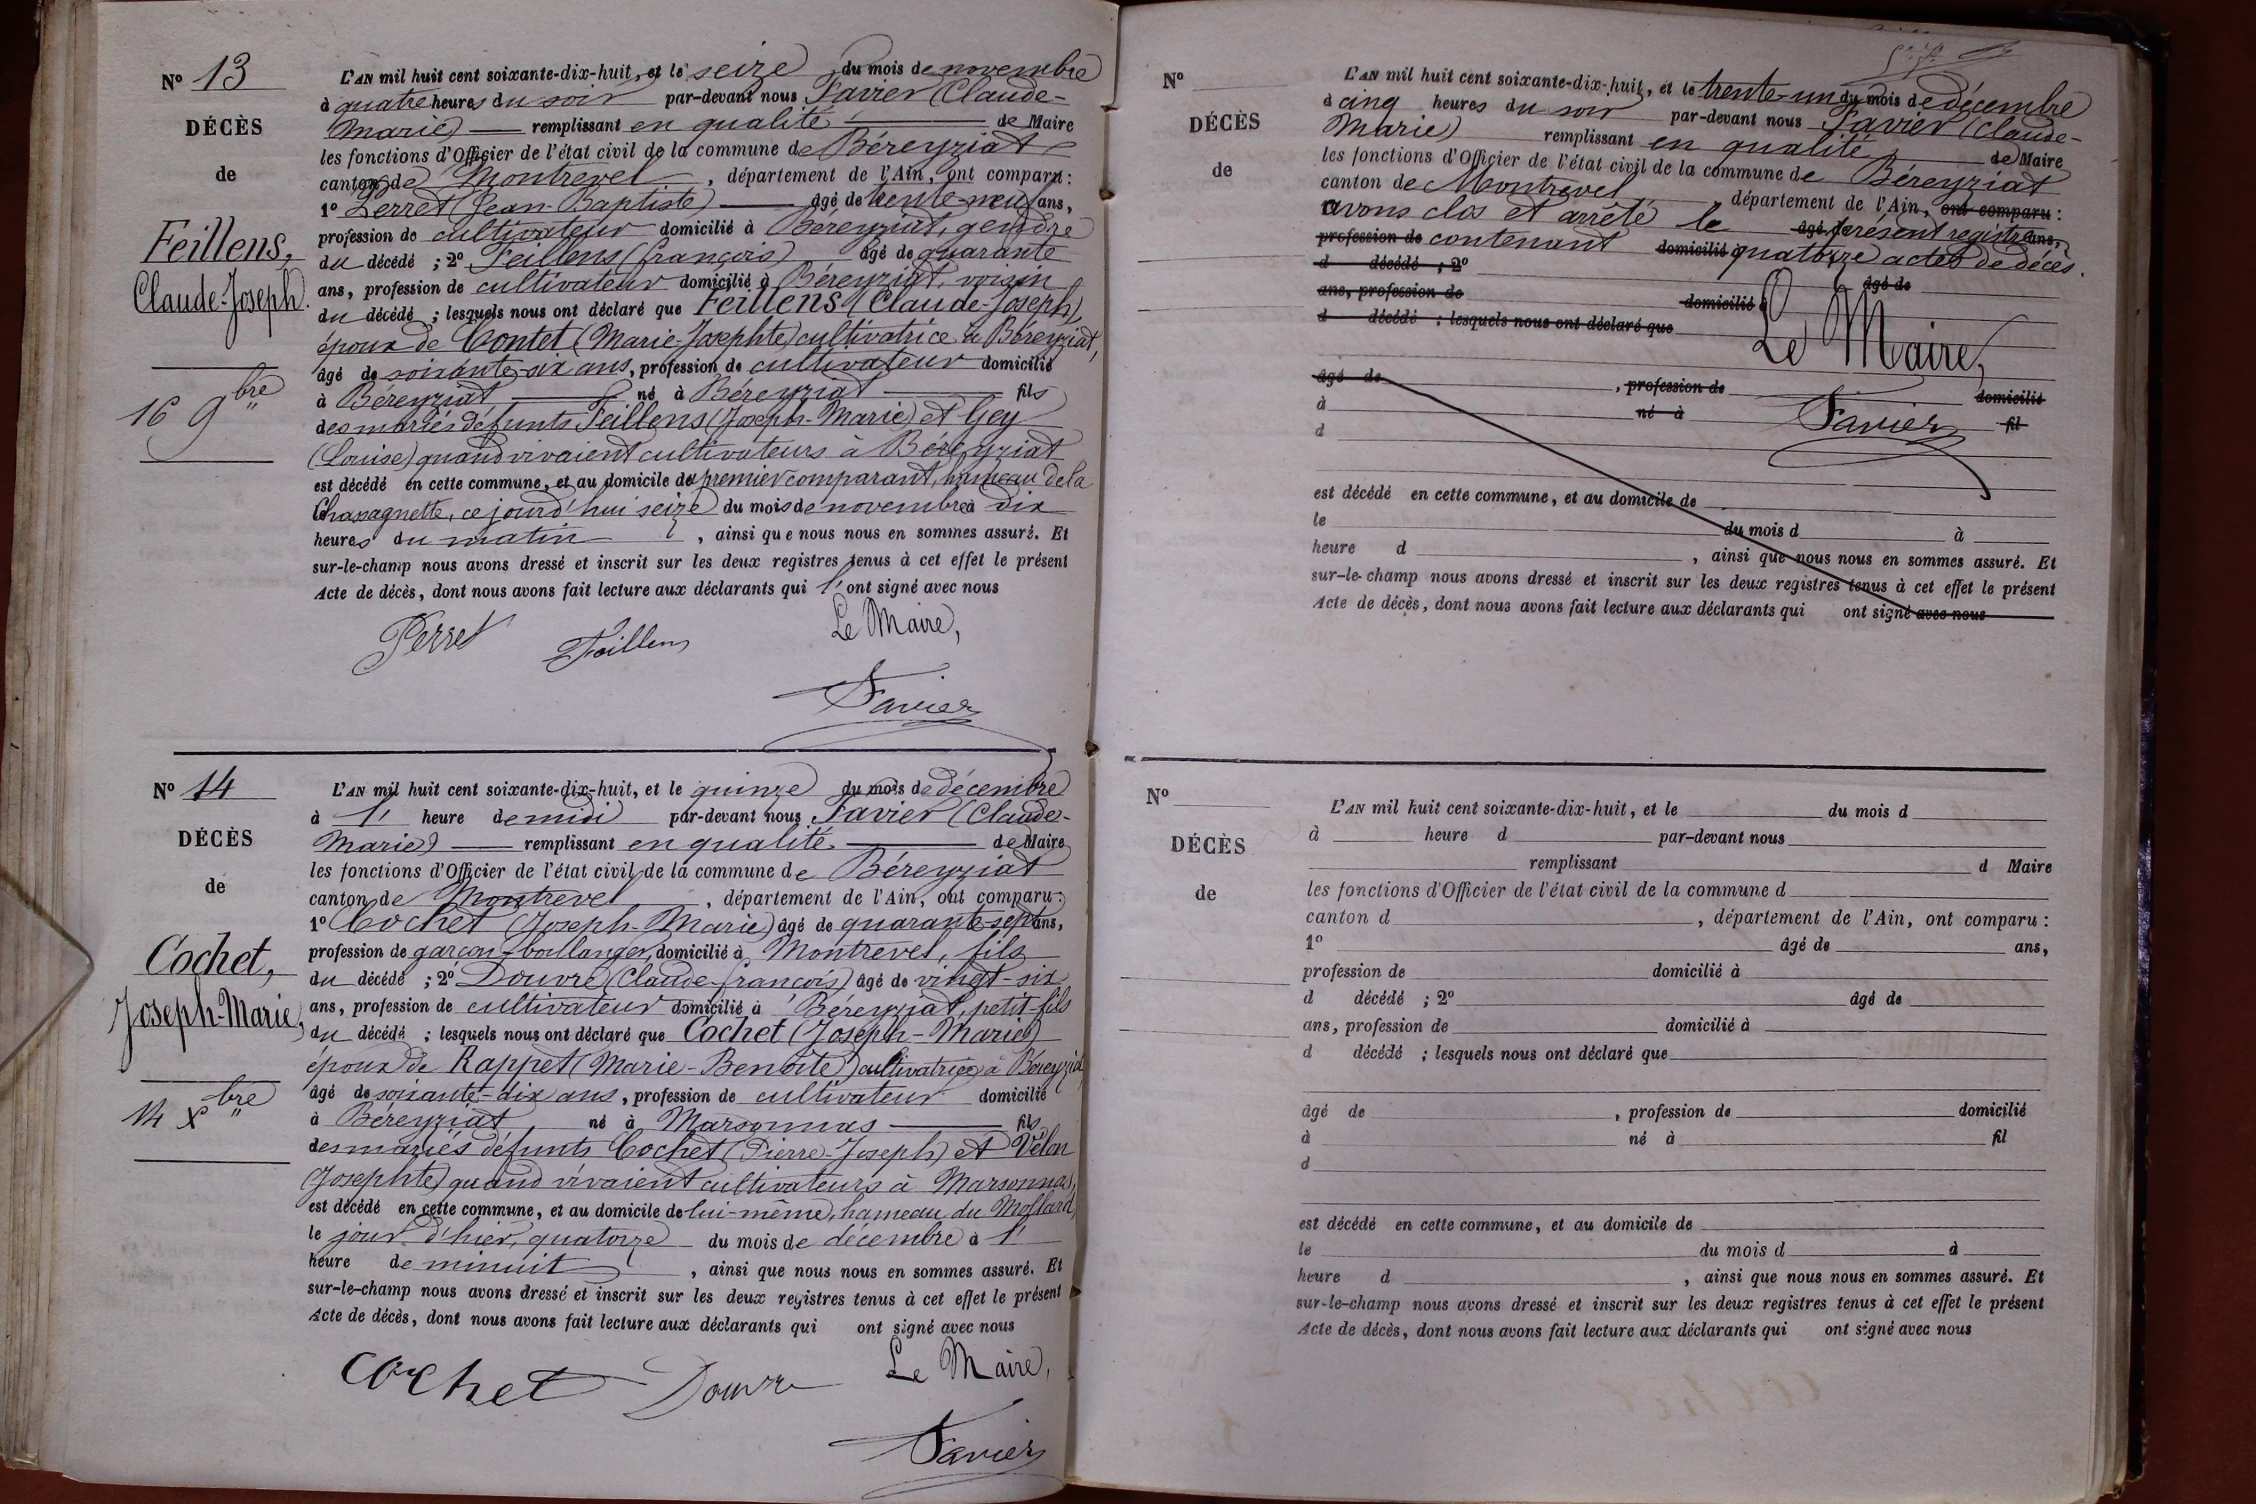 N° 13
DÉCÈS
de
Feillens,
Claude-Joseph.
16 9bre
L'AN mil huit cent soixante-dix-huit, et le seize du mois de novembre
à quatre heures du soir par-devant nous Favier (Claude-
Marie) remplissant en qualité de Maire
les fonctions d'Officier de l'état civil de la commune de Béreyziat
canton de Montrevel, département de l'Ain, ont comparu :
1° Perret (Jean-Baptiste) âgé de trente-neuf ans,
profession de cultivateur domicilié à Béreyziat, gendre
du décédé ; 2° Feillens (françois) âgé de quarante
ans, profession de cultivateur domicilié à Béreyziat, voisin
du décédé ; lesquels nous ont déclaré que Feillens (Claude-Joseph)
époux de Contet (Marie-Josephte) cultivatrice à Béreyziat,
âgé de soixante-six ans, profession de cultivateur domicilié
à Béreyziat né à Béreyziat fils
des mariés défunts Feillens (Joseph-Marie) et Gey
(Louise) quand vivaient cultivateurs à Béreyziat
est décédé en cette commune, et au domicile du premier comparant, hameau de la
Chassagnette, ce jourd'hui seize du mois de novembre à dix
heures du matin, ainsi que nous nous en sommes assuré. Et
sur-le-champ nous avons dressé et inscrit sur les deux registres tenus à cet effet le présent
Acte de décès, dont nous avons fait lecture aux déclarants qui l'ont signé avec nous
Perret Feillens Le Maire,
Favier
N° 14
DÉCÈS
de
Cochet,
Joseph-Marie,
14 Xbre
L'AN mil huit cent soixante-dix-huit, et le quinze du mois de décembre
à 1' heure de midi par-devant nous Favier (Claude-
Marie) remplissant en qualité de Maire
les fonctions d'Officier de l'état civil de la commune de Béreyziat
canton de Montrevel, département de l'Ain, ont comparu :
1° Cochet (Joseph-Marie) âgé de quarante-sept ans,
profession de garçon-boulanger, domicilié à Montrevel, fils
du décédé ; 2° Douvre (Claude-françois) âgé de vingt-six
ans, profession de cultivateur domicilié à Béreyziat, petit-fils
du décédé ; lesquels nous ont déclaré que Cochet (Joseph-Marie)
époux de Rappet (Marie-Benoite) cultivatrice à Béreyziat,
âgé de soixante-dix ans, profession de cultivateur domicilié
à Béreyziat né à Marsonnas fils
des mariés défunts Cochet (Pierre-Joseph) et Velon
(Josephte) quand vivaient cultivateurs à Marsonnas,
est décédé en cette commune, et au domicile de lui-même, hameau du Mollard,
le jour d'hier, quatorze du mois de décembre à 1'
heure de minuit, ainsi que nous nous en sommes assuré. Et
sur-le-champ nous avons dressé et inscrit sur les deux registres tenus à cet effet le présent
Acte de décès, dont nous avons fait lecture aux déclarants qui ont signé avec nous
Cochet Douvre Le Maire,
Favier
N°
DÉCÈS
de
L'AN mil huit cent soixante-dix-huit, et le trente-un du mois de décembre
à cinq heures du soir par-devant nous Favier (Claude-
Marie) remplissant en qualité de Maire
les fonctions d'Officier de l'état civil de la commune de Béreyziat
canton de Montrevel département de l'Ain, ont comparu :
avons clos et arrêté le âgé de présent registre ans,
profession de contenant domicilié quatorze actes de décès.
d décédé ; 2° âgé de
ans, profession de domicilié à
d décédé ; lesquels nous ont déclaré que
Le Maire,
âgé de , profession de domicilié
à né à fil
d
Favier
est décédé en cette commune, et au domicile de
le du mois d à
heure d , ainsi que nous nous en sommes assuré. Et
sur-le-champ nous avons dressé et inscrit sur les deux registres tenus à cet effet le présent
Acte de décès, dont nous avons fait lecture aux déclarants qui ont signé avec nous
N°
DÉCÈS
de
L'AN mil huit cent soixante-dix-huit, et le du mois d
à heure d par-devant nous
remplissant d Maire
les fonctions d'Officier de l'état civil de la commune d
canton d , département de l'Ain, ont comparu :
1° âgé de ans,
profession de domicilié à
d décédé ; 2° âgé de
ans, profession de domicilié à
d décédé ; lesquels nous ont déclaré que
âgé de , profession de domicilié
à né à fil
d
est décédé en cette commune, et au domicile de
le du mois d à
heure d , ainsi que nous nous en sommes assuré. Et
sur-le-champ nous avons dressé et inscrit sur les deux registres tenus à cet effet le présent
Acte de décès, dont nous avons fait lecture aux déclarants qui ont signé avec nous